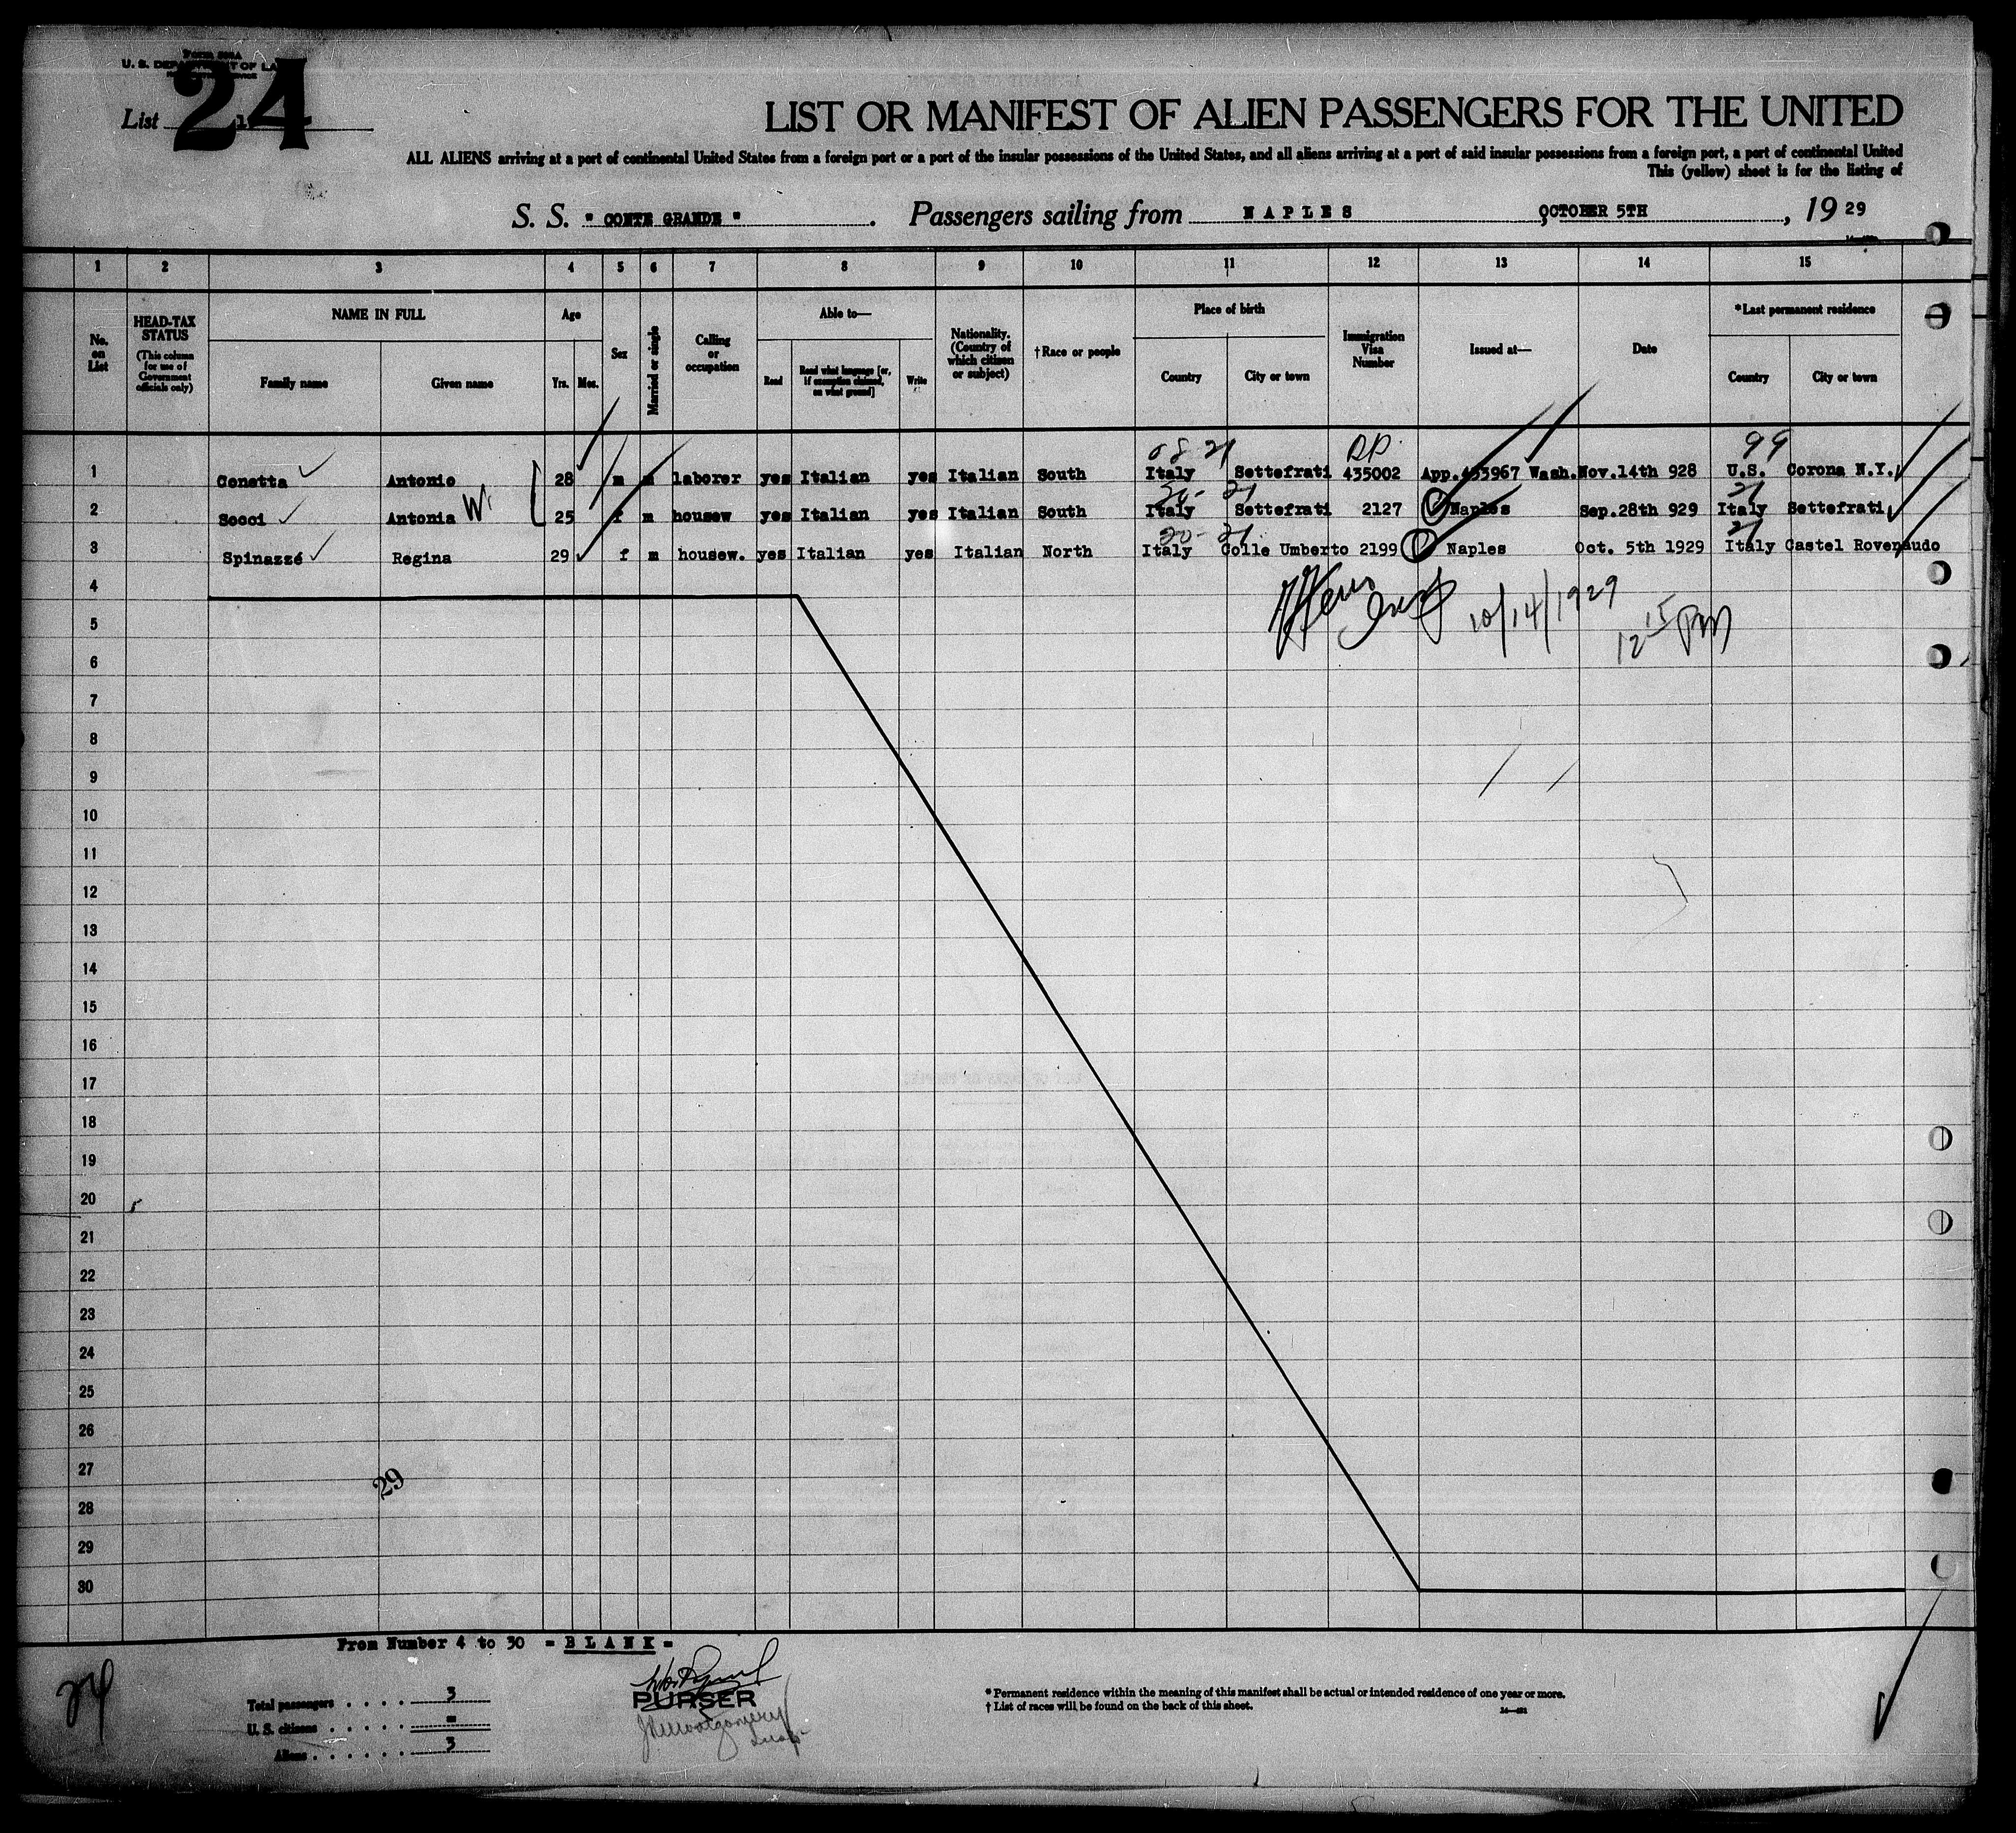 Form 500A
U. S. DEPARTMENT OF LA
24
List 1
LIST OR MANIFEST OF ALIEN PASSENGERS FOR THE UNITED
ALL ALIENS arriving at a port of continental United States from a foreign port or a port of the insular possessions of the United States, and all aliens arriving at a port of said insular possessions from a foreign port, a port of continental United
This (yellow) sheet is for the listing of
S. S. " CONTE GRANDE ". Passengers sailing from NAPLES, OCTOBER 5TH, 19 29
1 2 3 4 5 6 7 8 9 10 11 12 13 14 15
No. on List
HEAD-TAX STATUS (This column for use of Government officials only)
NAME IN FULL
Family name Given name
Age
Yrs. Mos.
Sex
Married or single
Calling or occupation
Able to—
Read Read what language [or, if exemption claimed, on what ground] Write
Nationality. (Country of which citizen or subject)
†Race or people
Place of birth
Country City or town
Immigration Visa Number
Issued at—
Date
*Last permanent residence
Country City or town
99
1 Conetta Antonio 28 m m laborer yes Italian yes Italian South Italy Settefrati 435002 App.453967 Wash. Nov.14th 928 U.S. Corona N.Y.
2 Socci Antonia W 25 f m housew yes Italian yes Italian South Italy Settefrati 2127 Naples Sep.28th 929 Italy Settefrati
3 Spinazzé Regina 29 f m housew. yes Italian yes Italian North Italy Colle Umberto 2199 Naples Oct. 5th 1929 Italy Castel Rovenaudo
4
10/14/1929
12 15 PM
5
6
7
8
9
10
11
12
13
14
15
16
17
18
19
20
21
22
23
24
25
26
27
29
28
29
30
From Number 4 to 30 = BLANK =
24
PURSER
Total passengers . . . . 3
U. S. citizens . . . . . =
Aliens . . . . . . 3
* Permanent residence within the meaning of this manifest shall be actual or intended residence of one year or more.
† List of races will be found on the back of this sheet.